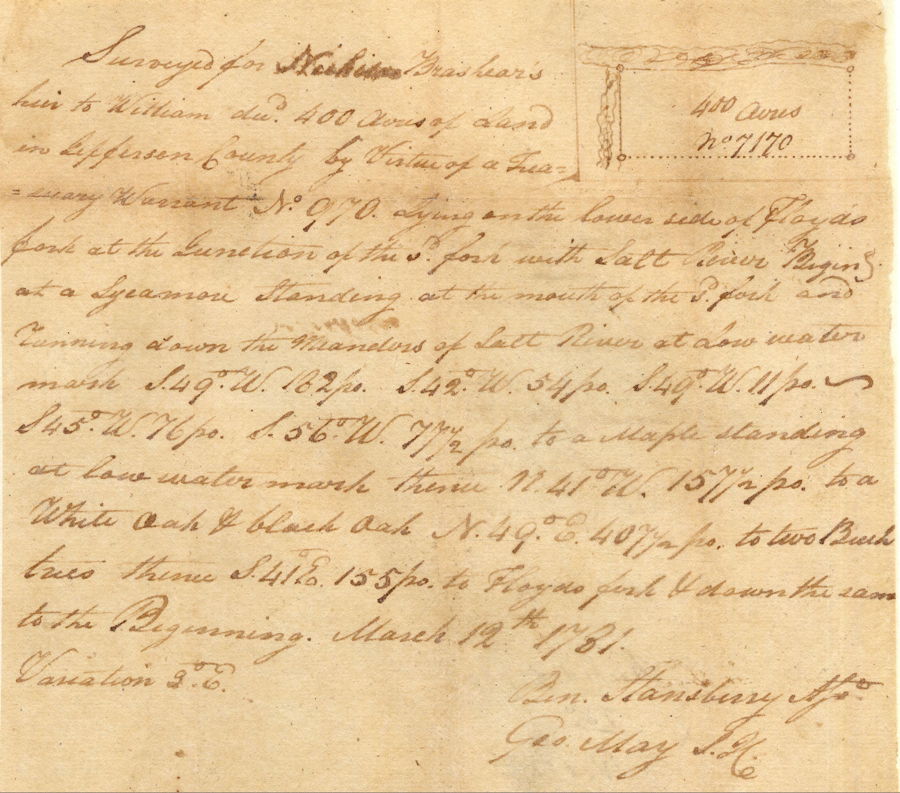 Surveyed for Brashear's
heir to William decd. 400 Acres of Land
in Jefferson County by Virtue of a Trea=
=suary Warrant No. 970. Lying on the lower side of Floyds
fork at the Junction of the Sd. fork with Salt River Begin
at a Sycamore Standing at the mouth of the Sd. fork and
running down the Meanders of Salt River at Low water
mark S.49°.W. 182 po. S.42°.W. 54 po. S.49°.W. 11 po.
S45°.W. 76 po. S.56°W. 77½ po. to a Maple standing
at low water mark thence N.41°W. 157½ po. to a
White Oak & black Oak N.49°.E. 407½ po. to two Beech
trees thence S.41°E. 155 po. to Floyds fork & down the same
to the Beginning. March 12th 1781.
Variation 2°.E.
Ben. Stansberry Asst.
Geo. May
400 Acres
No. 7170